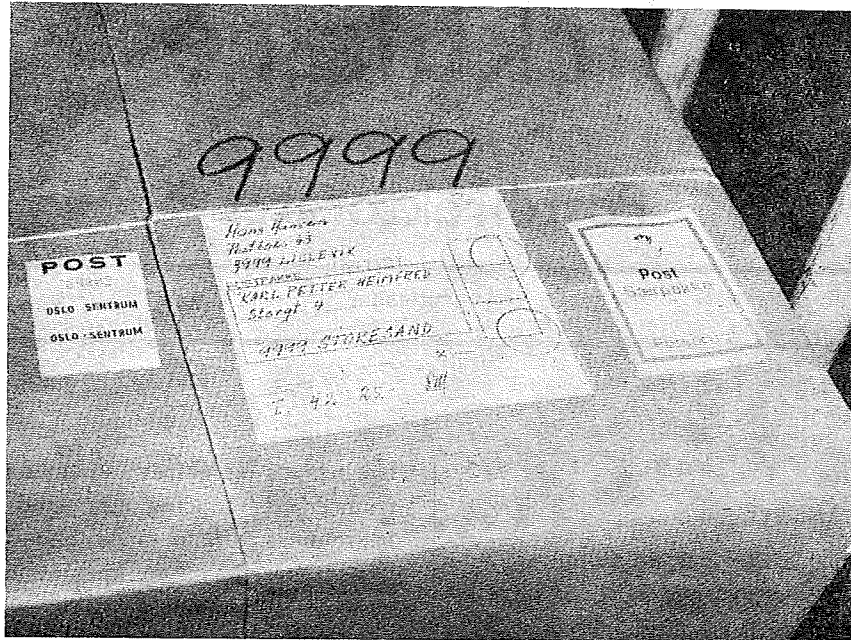 9999
POST
OSLO SENTRUM
OSLO-SENTRUM
Hans Hansen
9999 LILLEVIK
KARL PETTER HEIMFRED
Storgt 4
9999 STORESAND
Post